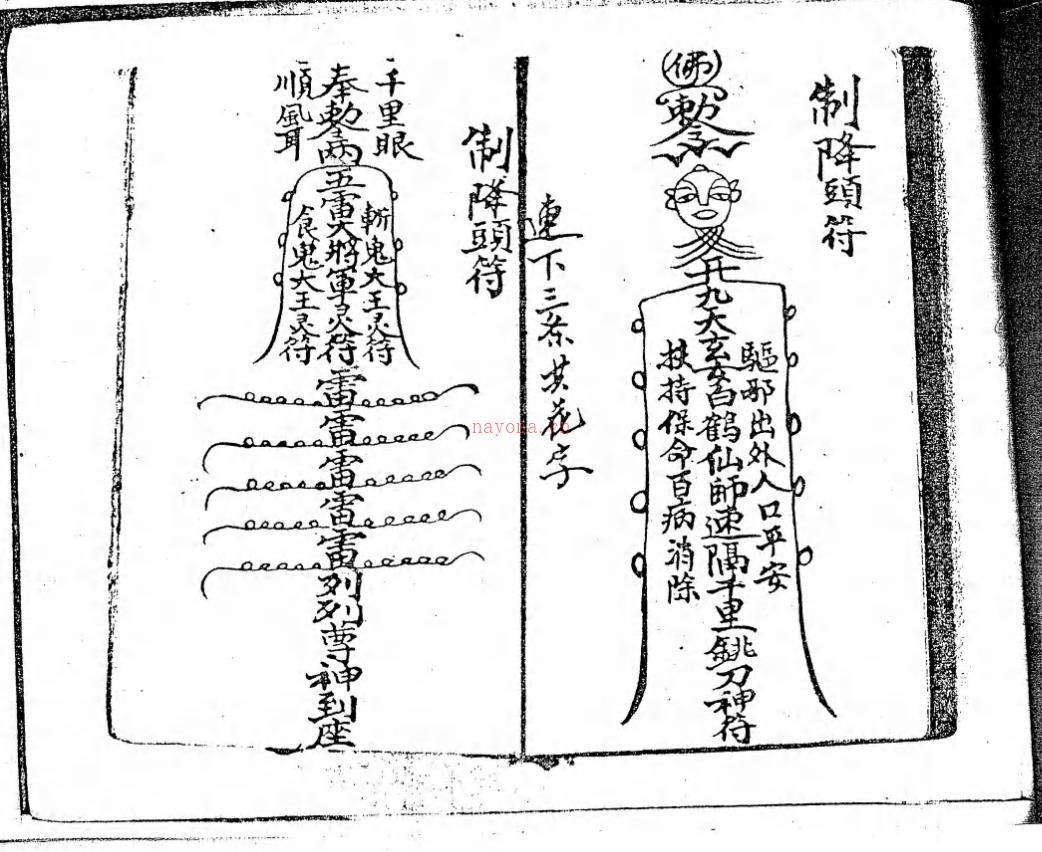 制降頭符
佛
敕令
九天玄女白鶴仙師速隔千里銚刀神符
驅邪出外人口平安
扶持保命百病消除
連下三条共花字
制降頭符
千里眼
奉敕令
順風耳
五雷大將軍灵符
斬鬼大王灵符
食鬼大王灵符
雷
雷
雷
雷
雷
列列尊神到座
nayona.cn